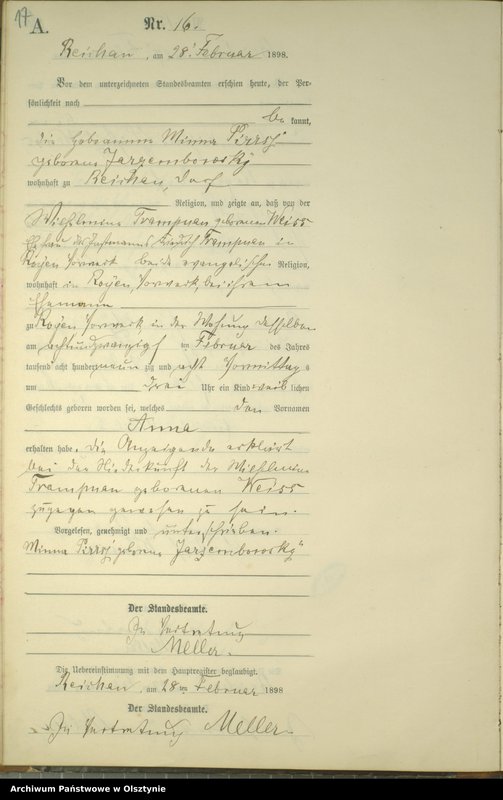 17
A.
Nr. 16.
Reichau, am 28t Februar 1898.
Vor dem unterzeichneten Standesbeamten erschien heute, der Per-
sönlichkeit nach
be kannt,
die Hebeamme Minna
geborene Jarzemborosky
wohnhaft zu Reichau, Dorf
Religion, und zeigte an, daß von der
Wilhelmine Trampnau geborenen Weiss
Ehefrau des Instmanns Friedrich Trampnau in
Royen Vorwerk beide evangelischer Religion,
wohnhaft in Royen, Vorwerk, bei ihrem
Ehemann
zu Royen Vorwerk in der Wohnung desselben
am achtundzwanzigst ten Februar des Jahres
tausend acht hundert neun zig und acht Vormittag s
um drei Uhr ein Kind weib lichen
Geschlechts geboren worden sei, welches den Vornamen
Anna
erhalten habe, die Anzeigende erklärt
bei der Niederkunft der Wilhelmine
Trampnau geborenen Weiss
zugegen gewesen zu sein.
Vorgelesen, genehmigt und unterschrieben.
Minna geborene Jarzemborosky
Der Standesbeamte.
In Vertretung
Meller.
Die Uebereinstimmung mit dem Hauptregister beglaubigt.
Reichau, am 28 ten Februar 1898
Der Standesbeamte.
In Vertretung Meller.
Archiwum Państwowe w Olsztynie